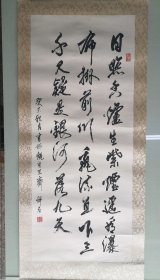 日照香爐生紫煙遥看瀑
布掛前川飛流直下三
千尺疑是銀河落九天
秋月書於